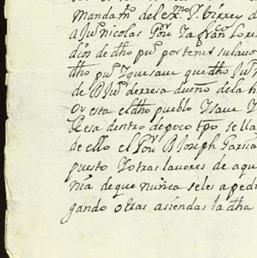 mandam.to del ex.mo S.r Virrey d
a Ju.o nicolas Gon.s Ya Van Lore
dios de dho pu.o por tener su lavo
dho pu.o Y que save que dho Ju.o
de D Ju.o derresa dueño de la h
Oy esta el dho pueblo Y save Y
Resa dentro de poco tpo se lla
de ello el Gov.r D Joseph Garsia
puesto Y otras lavores de aqu
nia de que nunca se les a pedi
gando otras asiendas la dha